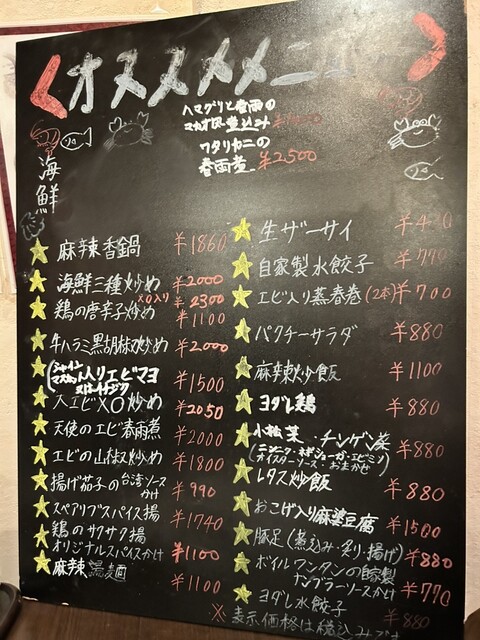 オススメメニュー
ハマグリと春雨の
マカオ風煮込み
ワタリカニの
春雨煮 ¥2500
海鮮
麻辣香鍋 ¥1860
海鮮三種炒め ¥2000
XO入り ¥2300
鶏の唐辛子炒め ¥1100
牛ハラミ黒胡椒炒め ¥2000
(シャイン
マスカット入りエビマヨ
¥1500
大エビXO炒め ¥2050
天使のエビ春雨煮 ¥2000
エビの山椒炒め ¥1800
揚げ茄子の台湾ソース
かけ ¥990
スペアリブスパイス揚 ¥1740
鶏のサクサク揚
オリジナルスパイスかけ ¥1100
麻辣湯麺 ¥1100
生ザーサイ
自家製水餃子 ¥770
エビ入り蒸春巻(2本)¥700
パクチーサラダ ¥880
麻辣炒飯 ¥1100
ヨダレ鶏 ¥880
小松菜・チンゲン菜 ¥880
(ニンニク・ネギショーガ・エビミソ
オイスターソース・おまかせ)
レタス炒飯 ¥880
おこげ入り麻婆豆腐 ¥1500
豚足(煮込み・炙り・揚げ) ¥880
ボイルワンタンの自家製
ナンプラーソースかけ ¥770
ヨダレ水餃子 ¥880
※表示価格は税込みです